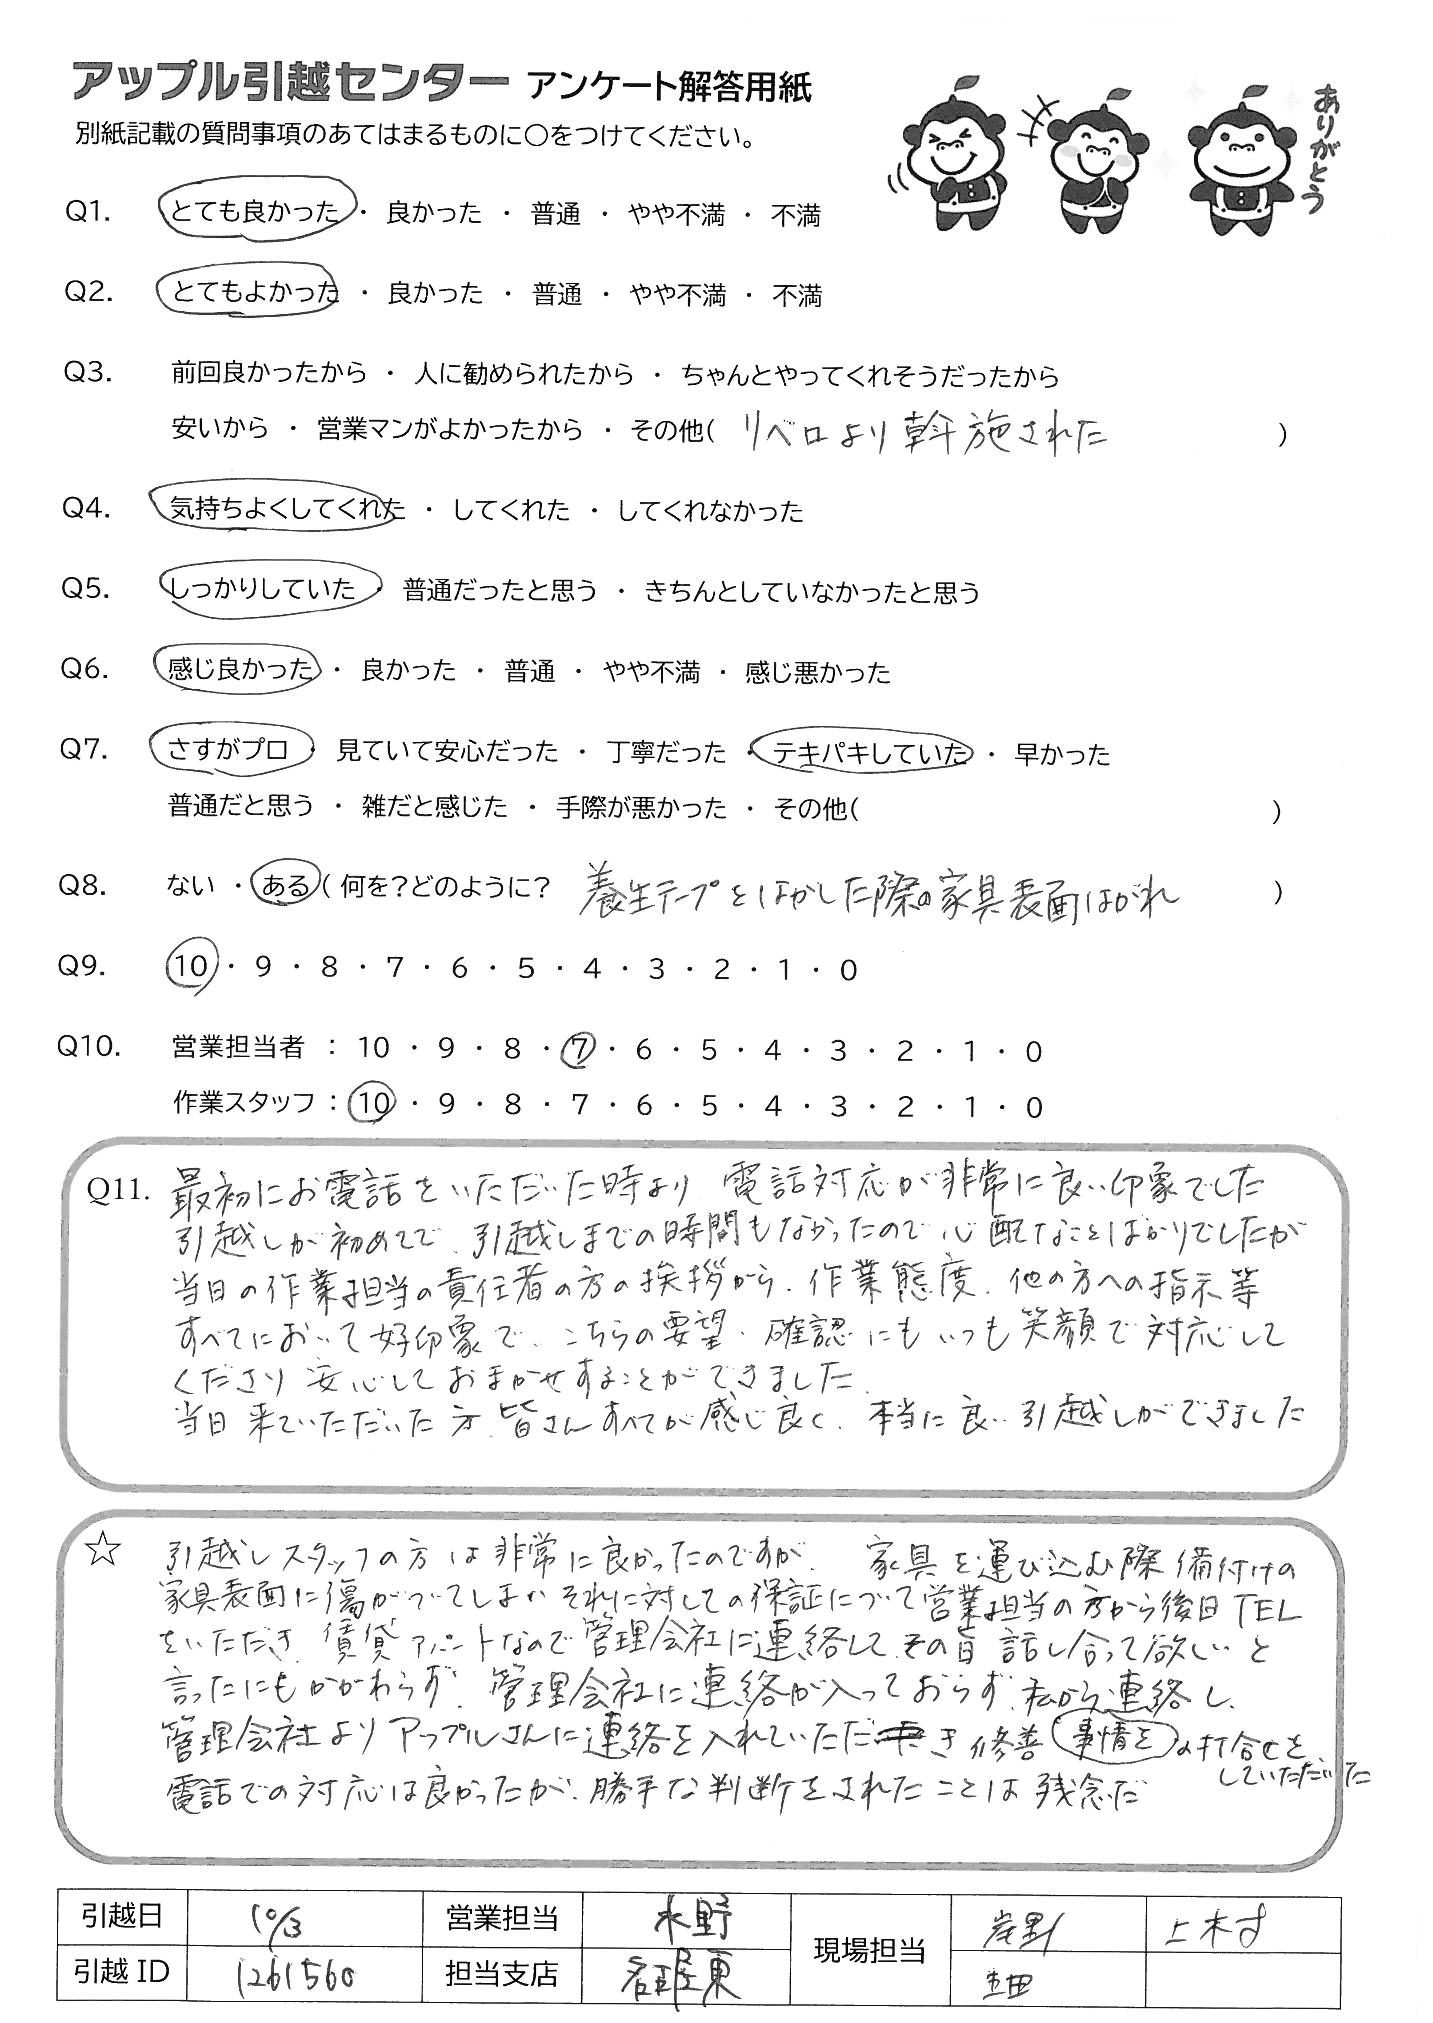 アップル引越センター アンケート解答用紙
別紙記載の質問事項のあてはまるものに〇をつけてください。
ありがとう
Q1. とても良かった ・ 良かった ・ 普通 ・ やや不満 ・ 不満
Q2. とてもよかった ・ 良かった ・ 普通 ・ やや不満 ・ 不満
Q3. 前回良かったから ・ 人に勧められたから ・ ちゃんとやってくれそうだったから
安いから ・ 営業マンがよかったから ・ その他( リベロより斡旋された )
Q4. 気持ちよくしてくれた ・ してくれた ・ してくれなかった
Q5. しっかりしていた ・ 普通だったと思う ・ きちんとしていなかったと思う
Q6. 感じ良かった ・ 良かった ・ 普通 ・ やや不満 ・ 感じ悪かった
Q7. さすがプロ ・ 見ていて安心だった ・ 丁寧だった ・ テキパキしていた ・ 早かった
普通だと思う ・ 雑だと感じた ・ 手際が悪かった ・ その他( )
Q8. ない ・ ある ( 何を？どのように？ 養生テープをはがした際の家具表面はがれ )
Q9. 10 ・ 9 ・ 8 ・ 7 ・ 6 ・ 5 ・ 4 ・ 3 ・ 2 ・ 1 ・ 0
Q10. 営業担当者 ： 10 ・ 9 ・ 8 ・ 7 ・ 6 ・ 5 ・ 4 ・ 3 ・ 2 ・ 1 ・ 0
作業スタッフ ： 10 ・ 9 ・ 8 ・ 7 ・ 6 ・ 5 ・ 4 ・ 3 ・ 2 ・ 1 ・ 0
Q11. 最初にお電話をいただいた時より、電話対応が非常に良い印象でした
引越しが初めてで、引越しまでの時間もなかったので心配なことばかりでしたが
当日の作業担当の責任者の方の挨拶から、作業態度、他の方への指示等
すべてにおいて好印象で、こちらの要望、確認にもいつも笑顔で対応して
くださり安心しておまかせすることができました。
当日来ていただいた方、皆さんすべてが感じ良く、本当に良い引越しができました
☆ 引越しスタッフの方は非常に良かったのですが、家具を運び込む際備付けの
家具表面に傷がついてしまいそれに対しての保証について営業担当の方から後日TEL
をいただき、賃貸アパートなので管理会社に連絡してその旨話し合って欲しいと
言ったにもかかわらず、管理会社に連絡が入っておらず、私から連絡し、
管理会社よりアップルさんに連絡を入れていただき 修善 事情を の打合せを
していただいた
電話での対応は良かったが、勝手な判断をされたことは残念だ
引越日 10/3 営業担当 水野 現場担当 岸野 上木寸
引越ID 1261560 担当支店 名古屋東